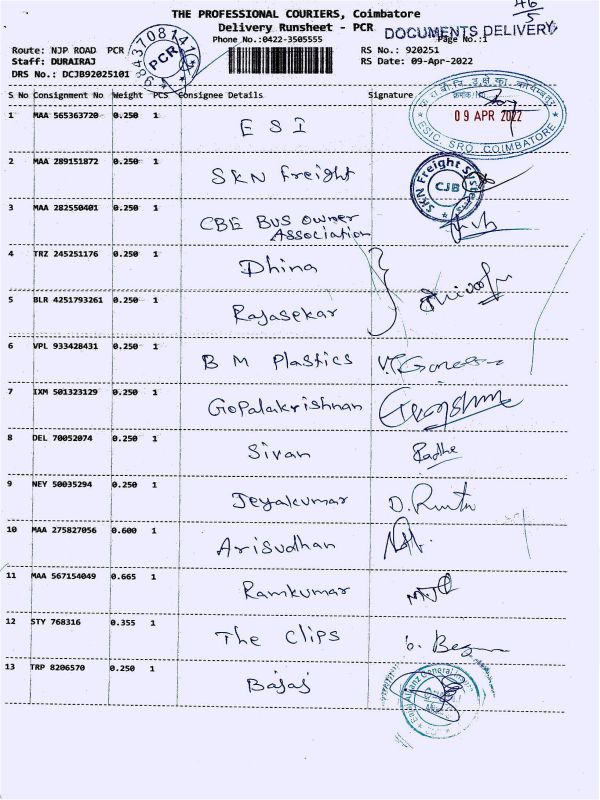 46/5
THE PROFESSIONAL COURIERS, Coimbatore
Delivery Runsheet - PCR
DOCUMENTS DELIVERY
Phone No.:0422-3505555
Page No.:1
Route: NJP ROAD PCR
RS No.: 920251
Staff: DURAIRAJ
RS Date: 09-Apr-2022
DRS No.: DCJB92025101
PCR
S No Consignment No Weight PCS Consignee Details Signature
1 MAA 565363720 0.250 1 E S I
09 APR 2022
ESIC, SRO, COIMBATORE
2 MAA 289151872 0.250 1 SKN Freight
SKN Freight Systems
CJB
3 MAA 282550401 0.250 1 CBE BUS owner
Association
4 TRZ 245251176 0.250 1 Dhina
5 BLR 4251793261 0.250 1 Rajasekar
6 VPL 933428431 0.250 1 B M Plastics
7 IXM 501323129 0.250 1 Gopalakrishnan
8 DEL 70052074 0.250 1 Sivan Radhe
9 NEY 50035294 0.250 1 Jeyakumar
10 MAA 275827056 0.600 1 Arisudhan
11 MAA 567154049 0.665 1 Ramkumar
12 STY 768316 0.355 1 The Clips
13 TRP 8206570 0.250 1 Bajaj